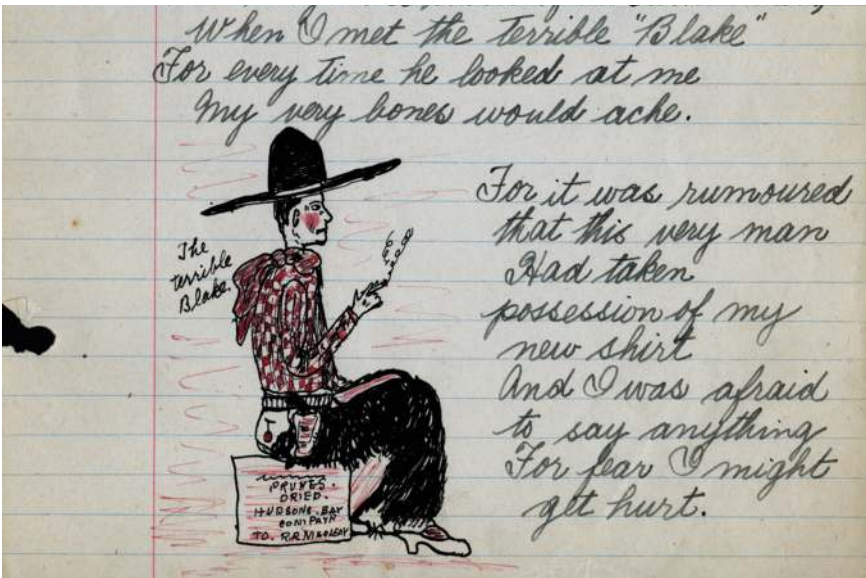 When I met the terrible "Blake"
For every time he looked at me
My very bones would ache.
For it was rumoured
that this very man
Had taken
possession of my
new shirt
And I was afraid
to say anything
For fear I might
get hurt.
The
terrible
Blake.
PRUNES.
DRIED.
HUDSONS. BAY
COMPAYN
TO. R.R.